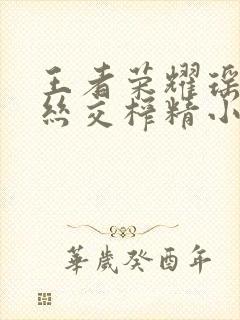 王者荣耀瑶
丝交榨精小
華歲癸酉年